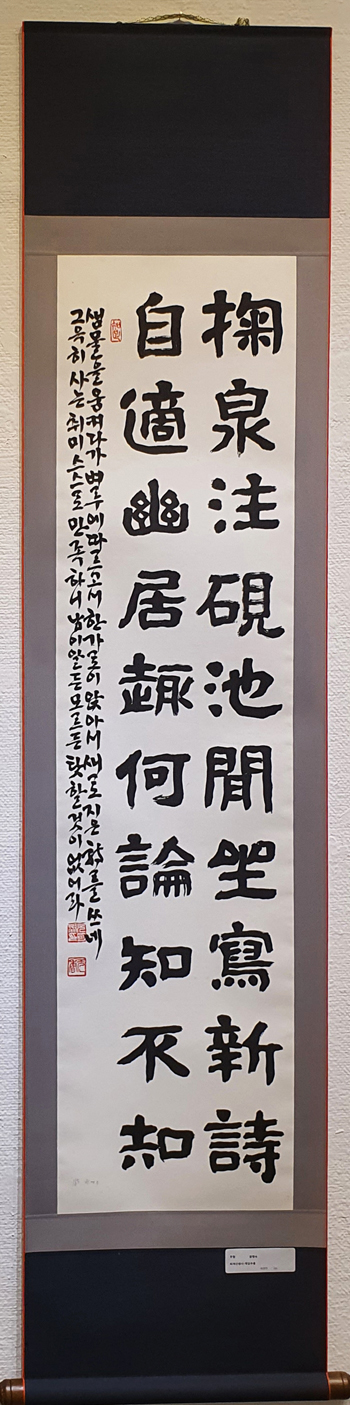 掬泉注硯池閒坐寫新詩
自適幽居趣何論知不知
샘물을 움켜다가 벼루에 따르고서 한가로이 앉아서 새로 지은 詩를 쓰네
그윽히 사는 취미 스스로 만족하니 남이 알든 모르든 탓할것이 없어라